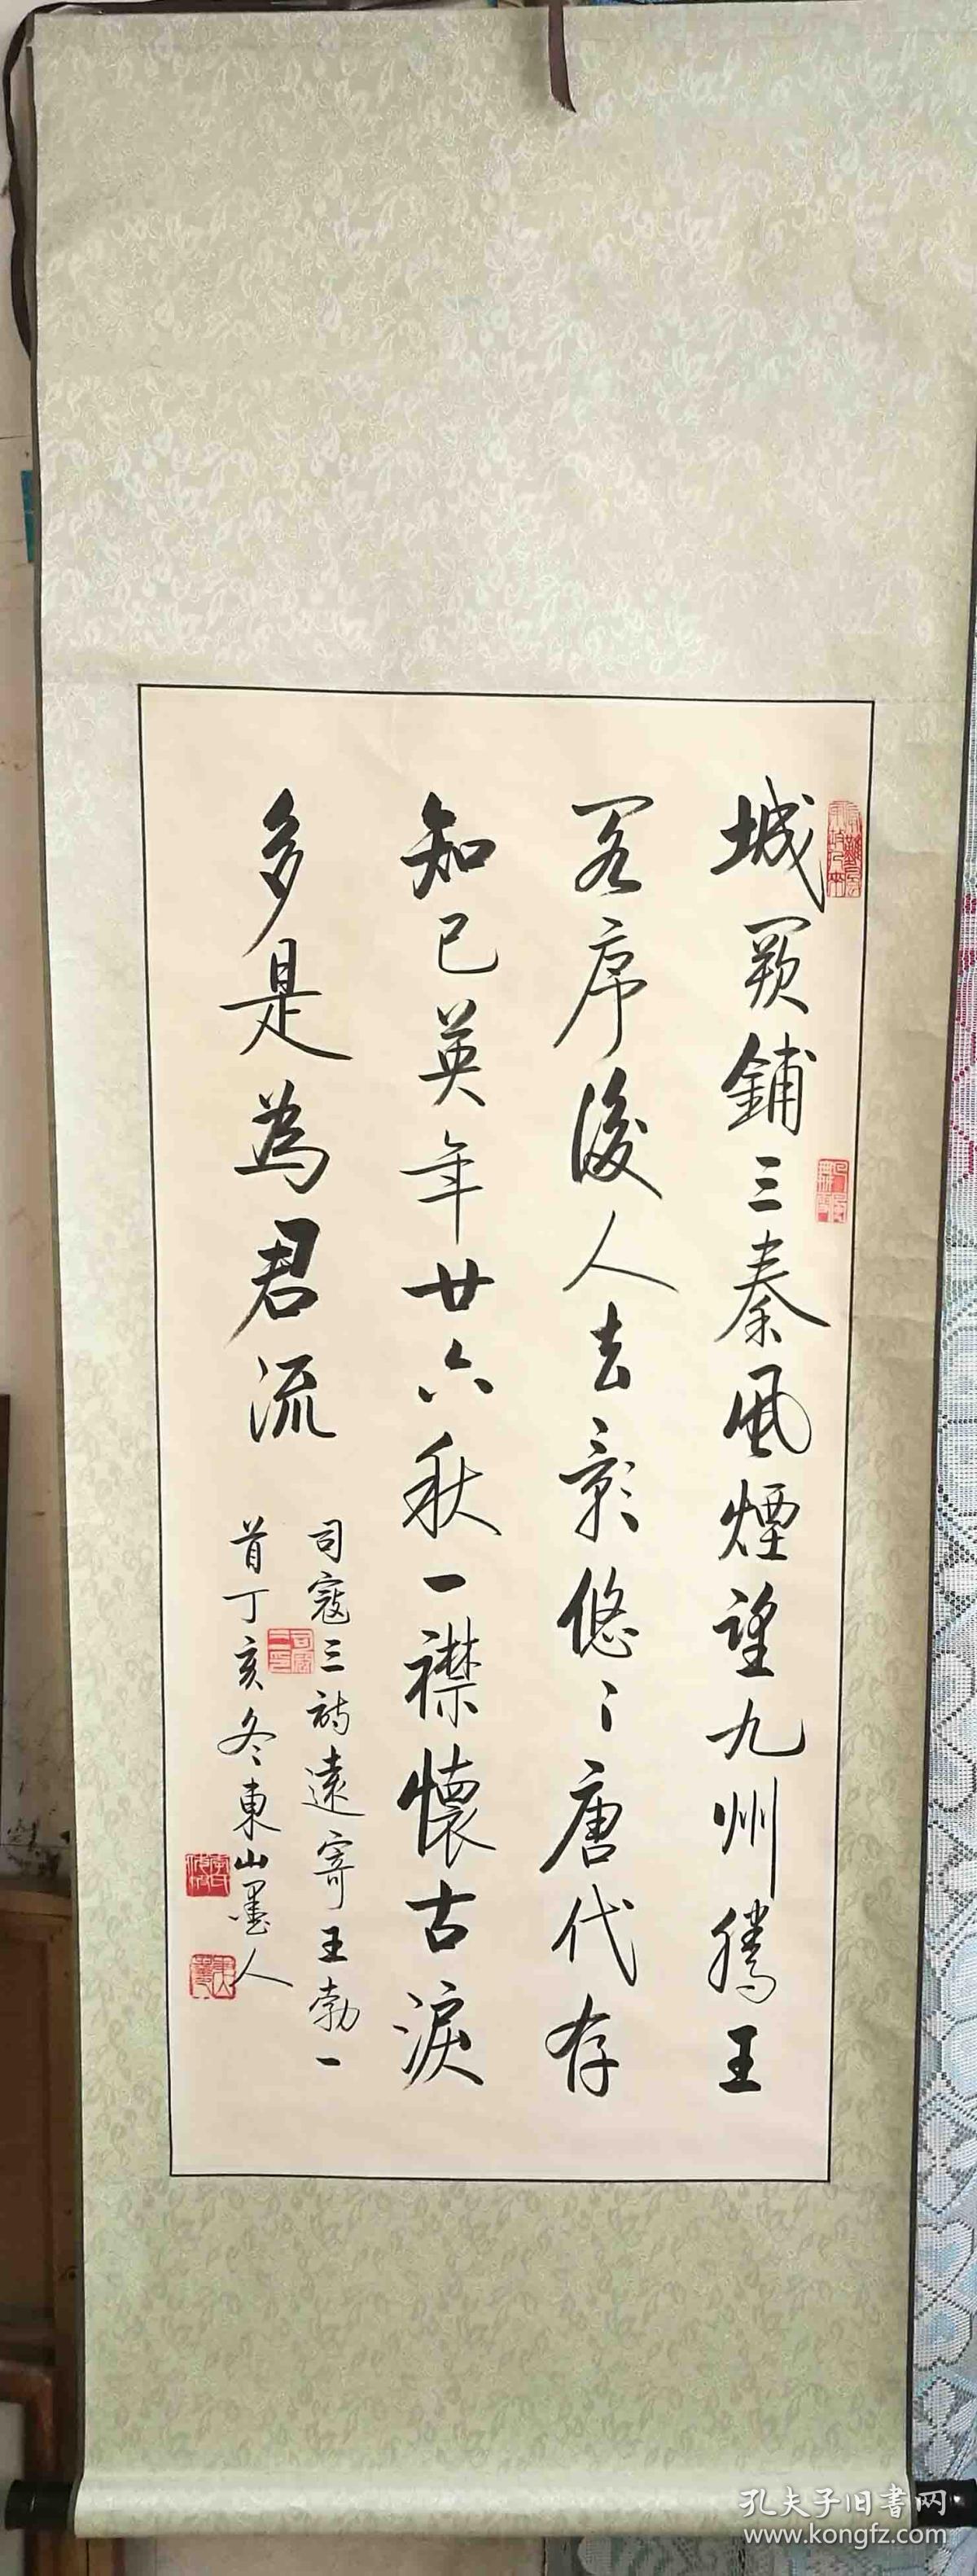 城闕鋪三秦風煙望九州騰王
閣序後人去影悠〻唐代存
知己英年廿六秋一襟懷古淚
多是為君流
司寇三詩遠寄王勃一
首丁亥冬東山墨人
孔夫子旧書网
www.kongfz.com